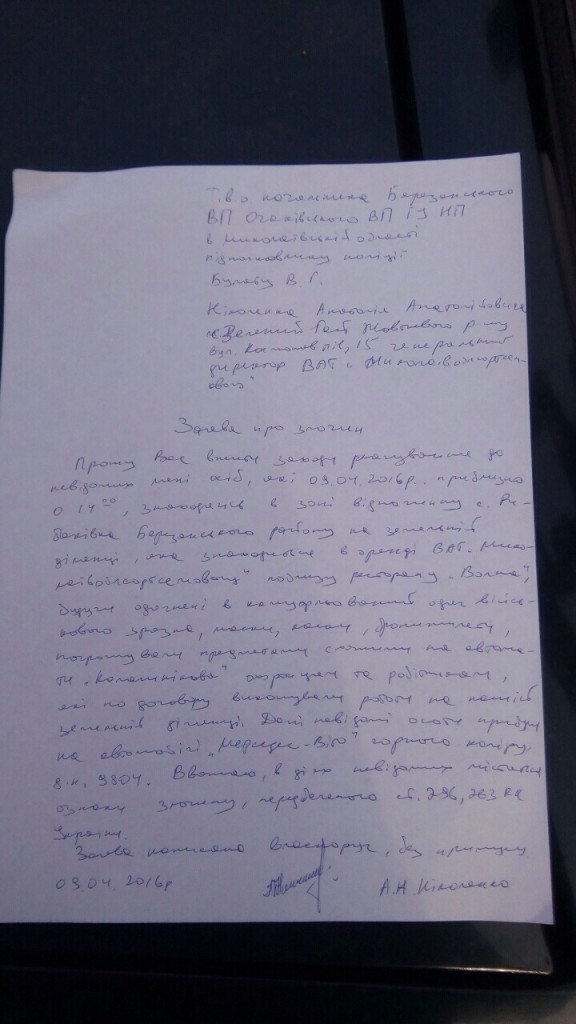 Т.в.о начальника Березанського
ВП Очаківського ВП ГУ НП
в Миколаївській області
підполковнику поліції
Булату В Г.
Ніколенка Анатолія Анатолійовича
с. Зелений Гай Жовтневого р-ну
вул. Космонавтів, 15 генеральний
директор ВАТ „Миколаївоблсортсем-
овощ"
Заява про злочин
Прошу Вас вжити заходи реагування до
невідомих мені осіб, які 09.04.2016р. приблизно
о 14 00, знаходячись в зоні відпочинку с. Ри-
баківка Березанського району на земельній
ділянці, яка знаходиться в оренді ВАТ „Мико-
лаївоблсортсемовощ" поблизу ресторану „Волна",
будучи одягнені в камуфльований одяг війсь-
кового зразка, маски, каски, бронежилети,
погрожували предметами схожими на автома-
ти „Калашнікова" охоронцям та робітникам,
які по договору виконували роботи на нашій
земельній ділянці. Дані невідомі особи прибули
на автомобілі „Мерседес-Віто" чорного коліру,
д.н. 9804. Вважаю, в діях невідомих містяться
ознаки злочину, передбаченого ст. 296, 263 КК
України.
Заява написана власноруч, без примусу
09.04.2016р А.А. Ніколенко